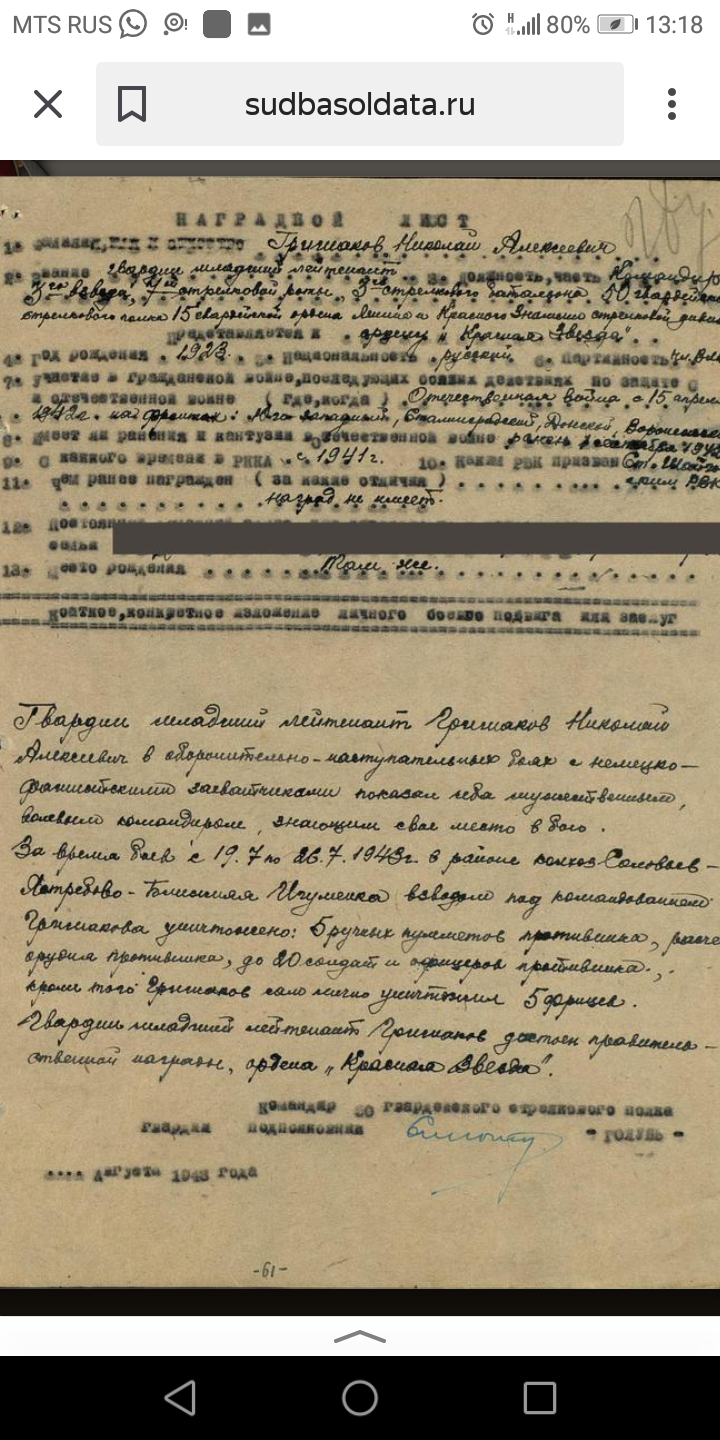 MTS RUS 80% 13:18
sudbasoldata.ru
НАГРАДНОЙ ЛИСТ
1. Фамилия, имя и отчество Гришаков Николай Алексеевич
2. Звание гвардии младший лейтенант 3. Должность, часть Командир
3го взвода, 7ой стрелковой роты, 3го стрелкового батальона 50 гвардейского
стрелкового полка 15 гвардейской ордена Ленина и Красного Знамени стрелковой
Представляется к ордену "Красная Звезда".
4. Год рождения 1923. 5. Национальность русский 6. Партийность
7. Участие в гражданской войне, последующих боевых действиях по защите С
и отечественной войне (где, когда) Отечественная война с 15 апреля
1942г. на фронтах: Юго-западный, Сталинградский, Донской, Воронежский
8. Имеет ли ранения и контузии в отечественной войне ранен
9. С какого времени в РККА с 1941г. 10. Каким РВК призван Ст. Шайго
11. Чем ранее награжден (за какие отличия) РВК
наград не имеет.
12.
семьи
13. Место рождения Там же.
Краткое, конкретное изложение личного боевого подвига или заслуг
Гвардии младший лейтенант Гришаков Николай
Алексеевич в оборонительно-наступательных боях с немецко-
фашистскими захватчиками показал себя мужественным,
волевым командиром, знающим свое место в бою.
За время боев с 19.7 по 26.7.1943г. в районе колхоз Соловьев-
Ястребово - Ближняя Игуменка взводом под командованием
Гришакова уничтожено: 5 ручных пулеметов противника, расче
орудия противника, до 20 солдат и офицеров противника,
кроме того Гришаков сам лично уничтожил 5 фрицев.
Гвардии младший лейтенант Гришаков достоин правитель-
ственной награды, ордена "Красная Звезда".
Командир 50 гвардейского стрелкового полка
гвардии подполковник - ГОЛУБЬ -
.... Августа 1943 года
-61-